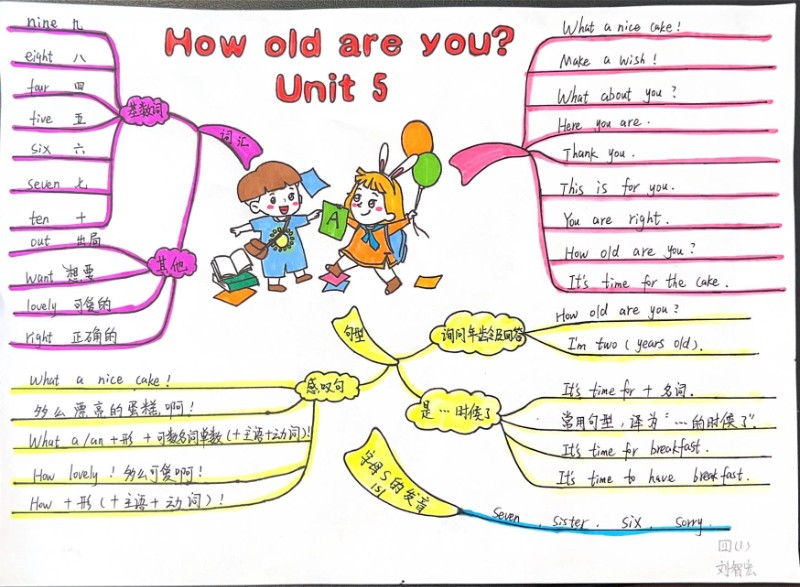 How old are you?
Unit 5
词汇
基数词
nine 九
eight 八
four 四
five 五
six 六
seven 七
ten 十
其他
out 出局
want 想要
lovely 可爱的
right 正确的
What a nice cake!
Make a wish!
What about you?
Here you are.
Thank you.
This is for you.
You are right.
How old are you?
It's time for the cake.
句型
询问年龄及回答
How old are you?
I'm two (years old).
感叹句
What a nice cake!
多么漂亮的蛋糕啊!
What a/an+形+可数名词单数(+主语+动词)!
How lovely! 多么可爱啊!
How+形(+主语+动词)!
是…时候了
It's time for + 名词.
常用句型,译为"…的时候了".
It's time for breakfast.
It's time to have breakfast.
字母S的发音
/s/
seven, sister, six, sorry.
A
四(1)
刘智宏